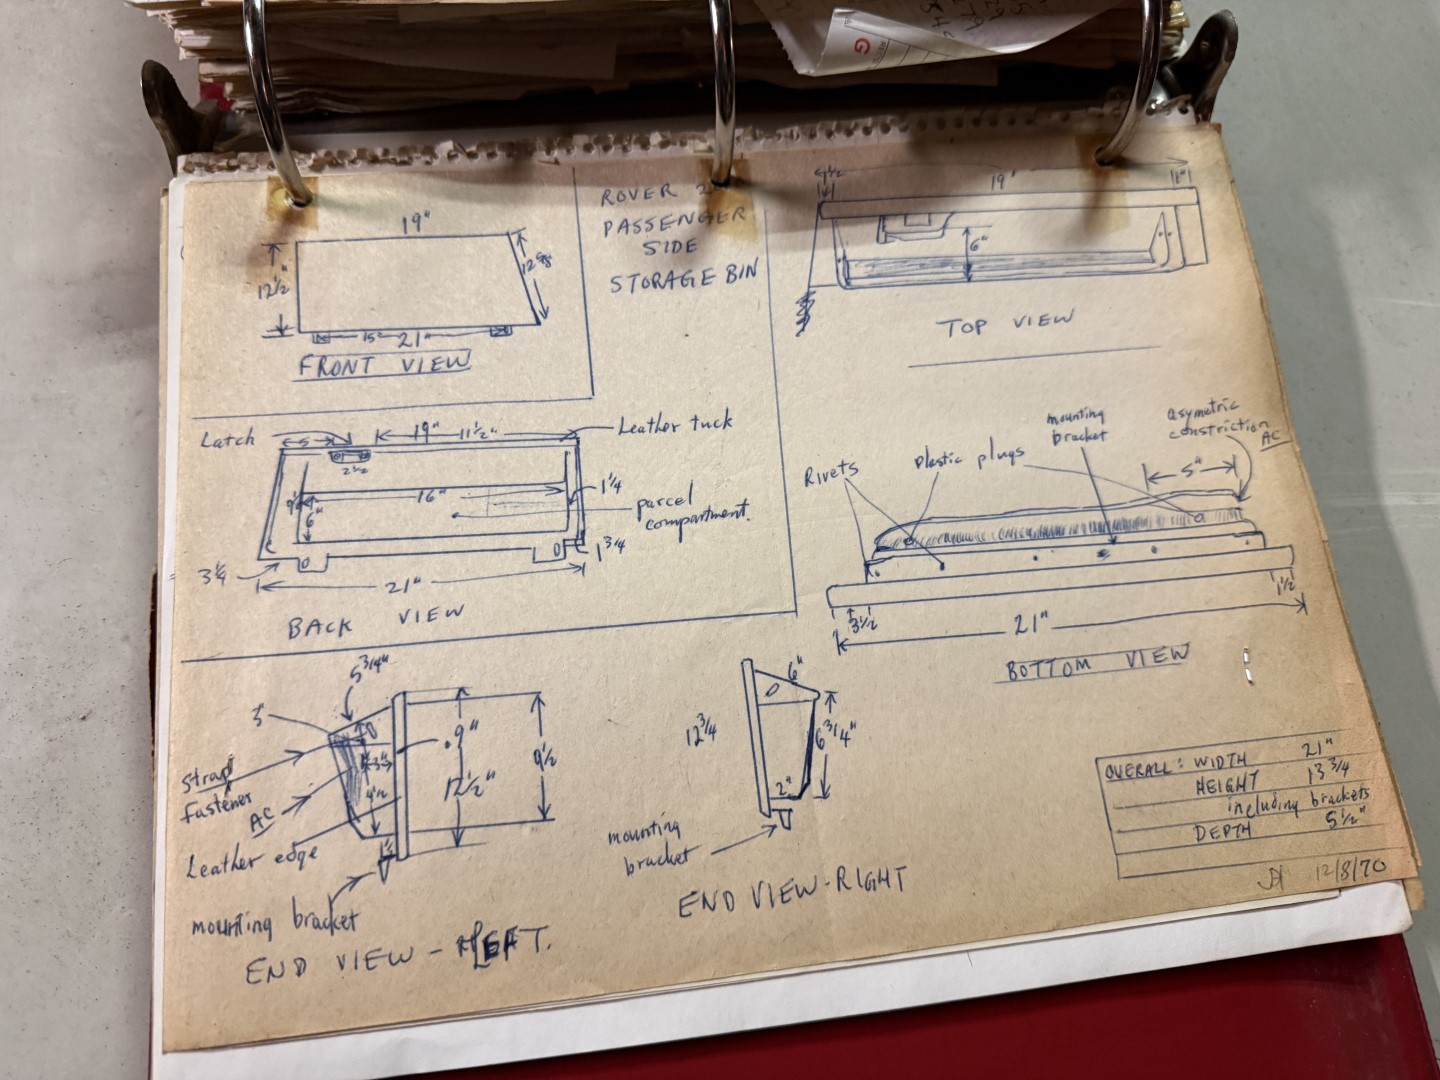 19"
12 1/2"
12 5/8
15"
21"
FRONT VIEW
ROVER 2
PASSENGER
SIDE
STORAGE BIN
19"
1"
6"
TOP VIEW
Latch
5
19"
11 1/2"
Leather tuck
2 1/2
16"
6"
1 1/4
parcel
compartment.
1 3/4
3 1/4
21"
BACK VIEW
Rivets
plastic plugs
mounting
bracket
asymetric
constriction
AC
5"
3 1/2
1 1/2
21"
BOTTOM VIEW
5 3/4"
9"
12 1/2"
9 1/2
4 1/2
strap
fastener
AC
Leather edge
mounting bracket
END VIEW - LEFT.
6"
12 3/4
6 3/4"
2"
mounting
bracket
END VIEW - RIGHT
OVERALL: WIDTH 21"
HEIGHT 13 3/4
including brackets
DEPTH 5 1/2"
12/8/70